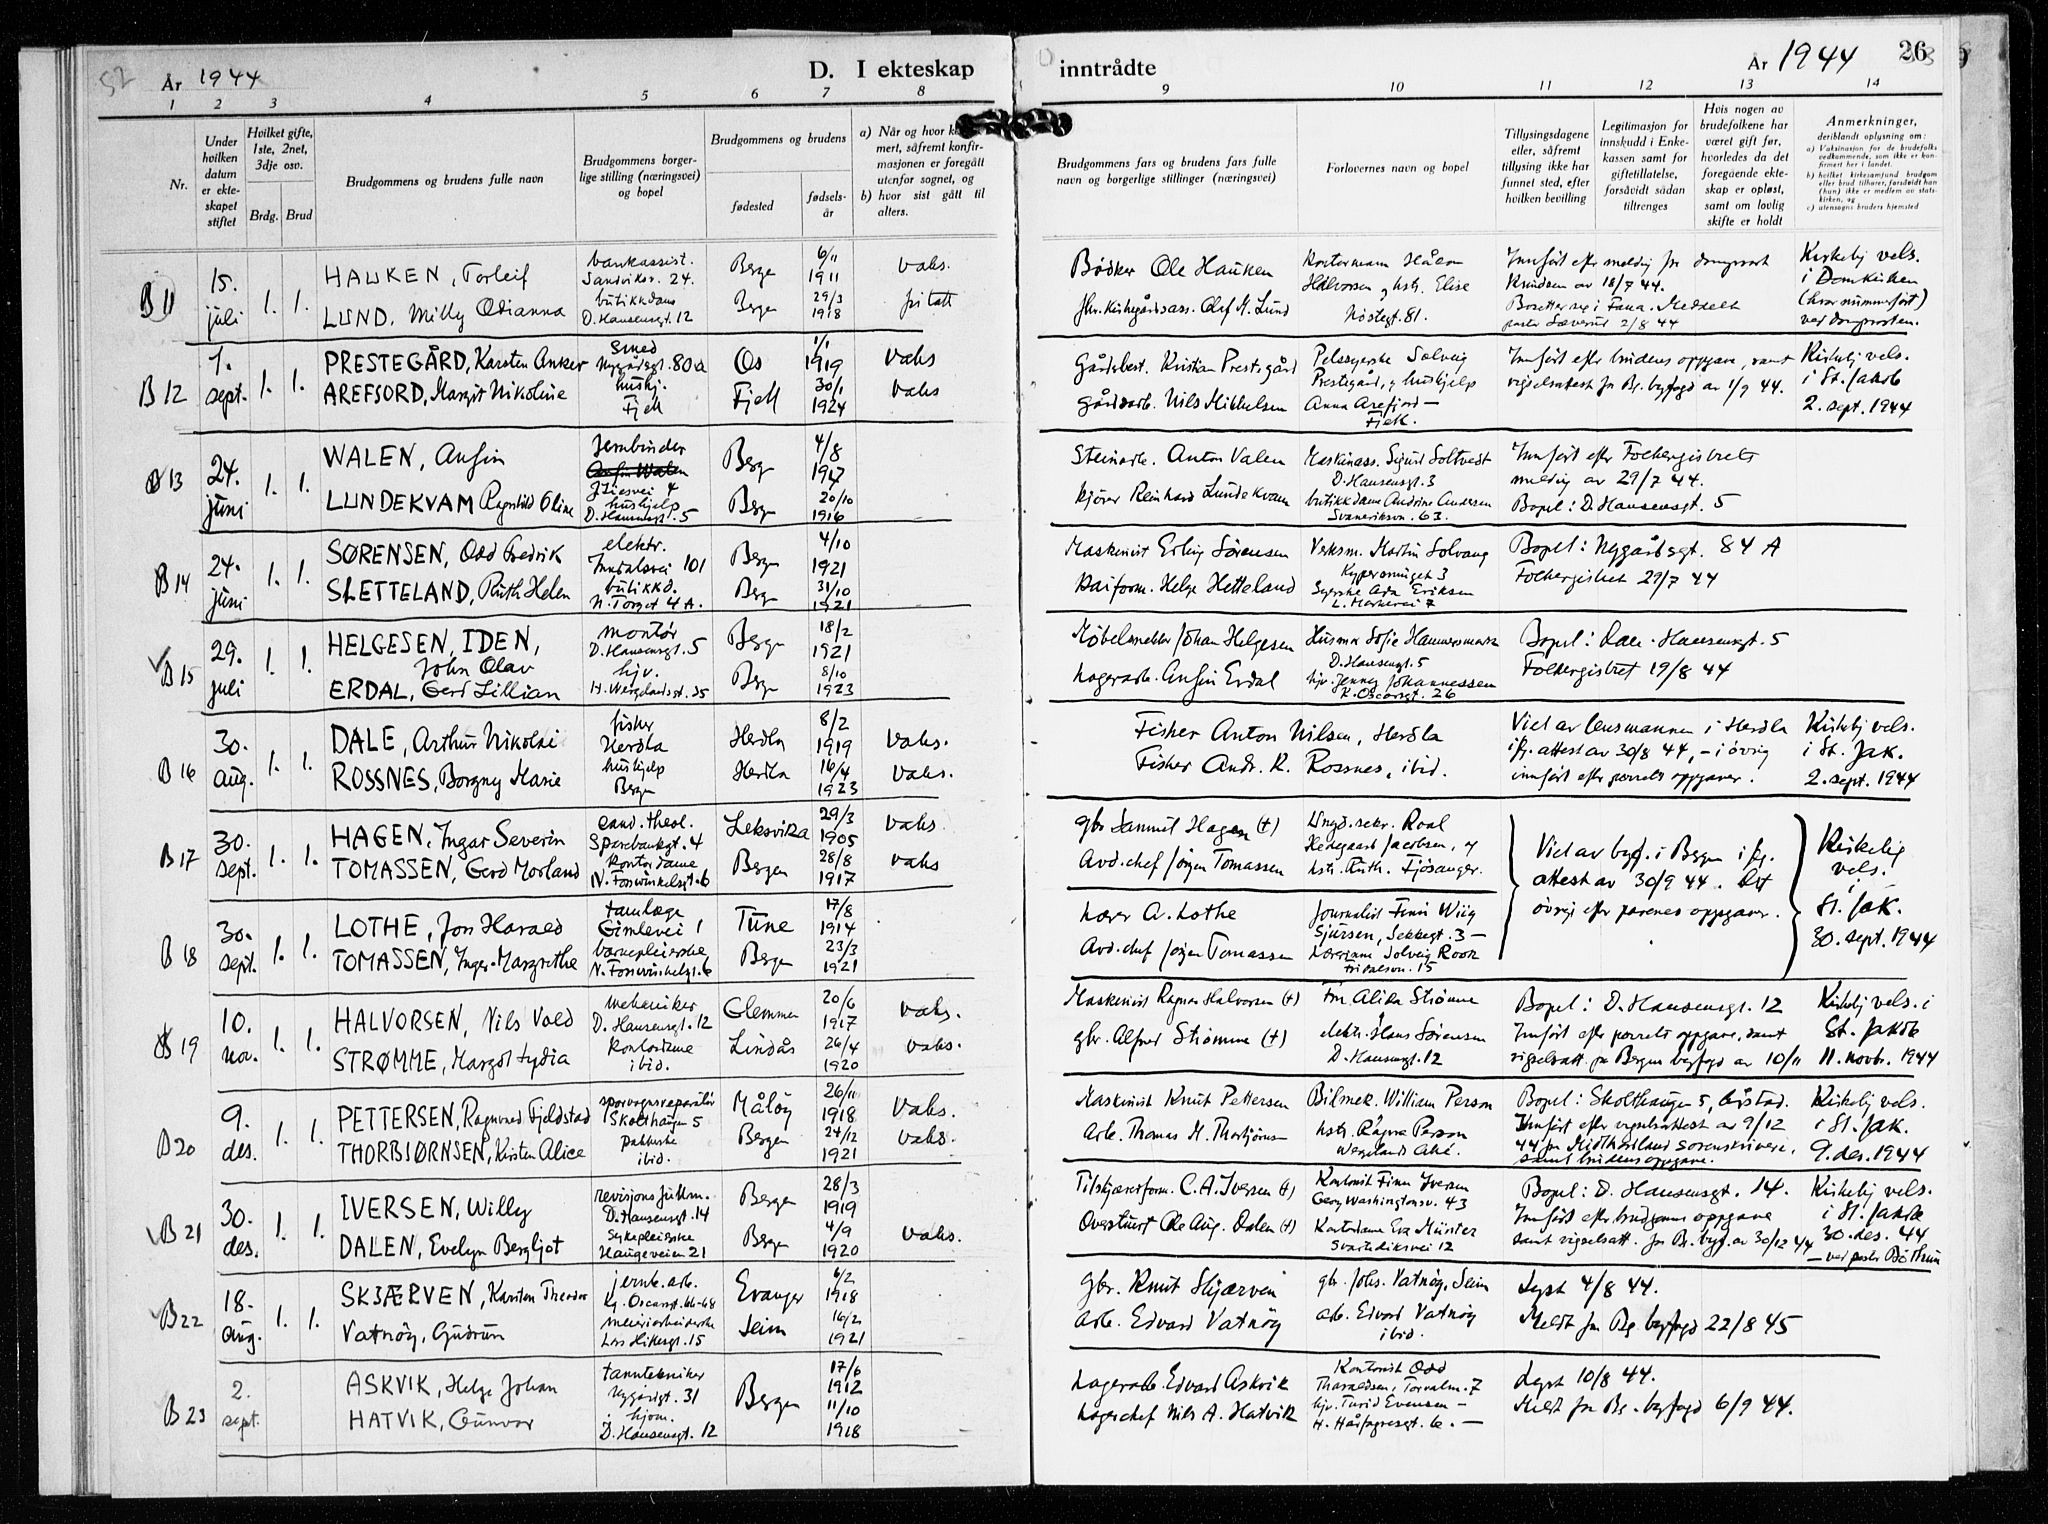 52
År 1944
D. I ekteskap
inntrådte
År 1944
26
1 2 3 4 5 6 7 8
9 10 11 12 13 14
Nr.
Under hvilken datum er ekteskapet stiftet
Hvilket gifte, 1ste, 2net, 3dje osv.
Brdg. Brud
Brudgommens og brudens fulle navn
Brudgommens borgerlige stilling (næringsvei) og bopel
Brudgommens og brudens
fødested
fødselsår
a) Når og hvor konfirmert, såfremt konfirmasjonen er foregått utenfor sognet, og
b) hvor sist gått til alters.
Brudgommens fars og brudens fars fulle navn og borgerlige stillinger (næringsvei)
Forlovernes navn og bopel
Tillysingsdagene eller, såfremt tillysing ikke har funnet sted, efter hvilken bevilling
Legitimasjon for innskudd i Enkekassen samt for giftetillatelse, forsåvidt sådan tiltrenges
Hvis nogen av brudefolkene har været gift før, hvorledes da det foregående ekteskap er opløst, samt om lovlig skifte er holdt
Anmerkninger,
deriblandt oplysning om:
a) Vaksinasjon for de brudefolks vedkommende, som ikke er konfirmert her i landet.
b) hvilket kirkesamfund brudgom eller brud tilhører, forsåvidt han (hun) ikke er medlem av statskirken, og
c) utensogns bruders hjemsted
B 11
15. juli
1. 1.
HAUKEN, Torleif
bankassist.
Sandviksv. 24.
Bergen
6/11 1911
vaks.
Bødker Ole Hauken
Kontormann Håkon Halvorsen og hstr. Elise
Nøstegt. 81.
Innført efter melding fra domprost Knudsen av 18/7 44.
Bosetter seg i Fana. Meddelt pastor Sæverud 2/8 44
Kirkelig vels. i Domkirken (hvor nummerført) ved domprosten.
LUND, Milly Odianna
butikkdame
D. Hansensgt. 12
Bergen
29/3 1918
fritatt
fhv. Kirkegårdsass. Olaf M. Lund
B 12
1. sept.
1. 1.
PRESTEGÅRD, Karsten Anker
Smed
Nygårdsgt. 80a
Os
1/1 1919
vaks
Gårdbest. Kristian Prestegård
Pelssyerske Solveig Prestegård, og hushjelp Anna Arefjord — Fjell.
Innført efter brudens oppgave, samt vigselsattest fra Bg. byfogd av 1/9 44.
Kirkelig vels. i St. Jakob 2. sept. 1944
AREFJORD, Margit Nikoline
hushj.
Fjell
Fjell
30/1 1924
vaks
gårdsarb. Nils Mikkelsen
B 13
24. juni
1. 1.
WALEN, Anfin
Jernbinder
J. Liesvei 4
Bergen
4/8 1917
Steinarb. Anton Valen
Maskinass. Sigurd Soltvedt
D. Hansensgt. 3
Innført efter Folkergistrets melding av 29/7 44.
Bopel: D. Hansensgt. 5
LUNDEKVAM Ragnhild Oline
hushjelp
D. Hansensgt. 5
Bergen
20/10 1916
kjører Reinhard Lundekvam
butikkdame Andrine Andersen
63.
B 14
24. juni
1. 1.
SØRENSEN, Odd Fredrik
elektr.
Inndalsvei 101
Bergen
4/10 1921
Maskinist Erling Sørensen
Verksm. Martin Solvang
Kypersmuget 3
Bopel: Nygårdsgt. 84 A
Folkergistret 29/7 44
SLETTELAND, Ruth Helen
butikkd.
N. Torget 4 A.
Bergen
31/10 1921
Kaiform. Helge Hetteland
Syerske Ada Eriksen
L. Markevei 7
B 15
29. juli
1. 1.
HELGESEN, IDEN, John Olav
montør
D. Hansensgt. 5
Bergen
18/2 1921
Møbelsnekker Johan Helgesen
Husmor Sofie Hammersmark
D. Hansensgt. 5
Bopel: Dan. Hansensgt. 5
Folkergistret 19/8 44
ERDAL, Gerd Lillian
hjv.
H. Wergelandsgt. 35
Bergen
8/10 1923
Lagerarb. Anfin Erdal
hjv. Jenny Johannessen
K. Oscarsgt. 26
B 16
30. aug.
1. 1.
DALE, Arthur Nikolai
fisker
Herdla
Herdla
8/2 1919
vaks.
Fisker Anton Nilsen, Herdla
Viet av lensmannen i Herdla ifg. attest av 30/8 44, — i øvrig innført efter parrets oppgaver.
Kirkelig vels. i St. Jak. 2. sept. 1944
ROSSNES, Borgny Marie
hushjelp
Bergen
Herdla
16/4 1923
vaks.
Fisker Andr. K. Rossnes, ibid.
B 17
30. sept.
1. 1.
HAGEN, Ingar Severin
cand. theol.
Sparebankgt. 4
Leksvika
29/3 1905
vaks
gbr Samuel Hagen (+)
Ungd.sekr. Roal Hedegaard Jacobsen, og hstr. Ruth. Fjøsanger.
Viet av byf. i Bergen ifg. attest av 30/9 44. Det øvrige efter parenes oppgaver.
Kirkelig vels. i St. Jak. 30. sept. 1944
TOMASSEN, Gerd Morland
Kontordame
N. Forswinkelsgt. 6
Bergen
28/8 1917
vaks
Avd.chef Jørgen Tomassen
B 18
30. sept.
1. 1.
LOTHE, Jon Harald
tannlæge
Gimlevei 1
Tune
17/8 1914
Lærer A. Lothe
Journalist Finn Wiig Sjursen, Sekkegt. 3 —
TOMASSEN, Inger-Margrethe
barnepleierske
N. Forswinkelsgt. 6
Bergen
23/3 1921
Avd.chef Jørgen Tomassen
Lærerinne Solveig Roon
Fridalsvn. 15
B 19
10. nov.
1. 1.
HALVORSEN, Nils Vold
mekaniker
D. Hansensgt. 12
Glemmen
20/6 1917
vaks.
Maskinist Ragnar Halvorsen (+)
Frk. Alida Strømme
Bopel: D. Hansensgt. 12
Innført efter parrets oppgave, samt vigselsatt. fra Bergen byfogd av 10/11
Kirkelig vels. i St. Jakob 11. novb. 1944
STRØMME, Margot Lydia
kontordame
ibid.
Lindås
26/4 1920
vaks.
gbr. Alfred Strømme (+)
elektr. Hans Sørensen
D. Hansensgt. 12
B 20
9. des.
1. 1.
PETTERSEN, Ragnvald Fjeldstad
sporvognsreparatør
Skolthaugen 5
Måløy
26/11 1918
Vaks.
Maskinist Knut Pettersen
Bilmek. William Person
Bopel: Skolthaugen 5, Årstad.
Innført efter vigselsattest av 9/12 44 fra Midthordland sorenskriveri, samt brudens oppgave.
Kirkelig vels. i St. Jak. 9. des. 1944
THORBJØRNSEN, Kirsten Alice
pakkerske
ibid.
Bergen
24/12 1921
Vaks.
Arb. Thomas M. Thorbjørnsen
hstr. Ragna Person
Wergelands Allé.
B 21
30. des.
1. 1.
IVERSEN, Willy
revisjonsfullm.
D. Hansensgt. 14
Bergen
28/3 1919
Tilskjærerform. C. A. Iversen (+)
Kontorist Finn Iversen
Georg Washingtonsv. 43
Bopel: D. Hansensgt. 14.
Innført efter brudgommens oppgave samt vigselsatt. fra Bg. byf. av 30/12 44
Kirkelig vels. i St. Jakob 30. des. 44 — ved pastor Bøthun
DALEN, Evelyn Bergljot
Sykepleierske
Haugeveien 21
Bergen
4/9 1920
vaks.
Overstuert Ole Aug. Dalen (+)
Kontordame Eva Münster
Svartediksvei 12
B 22
18. aug.
1. 1.
SKJÆRVEN, Karsten Theodor
jernb. arb.
Kg. Oscarsgt. 66-68
Evanger
6/2 1918
gbr. Knut Skjærven
gbr. Johs. Vatnøy, Seim
Lyst 4/8 44.
Meldt fra Bg. byfogd 22/8 45
Vatnøy, Gudrun
meieriarbeiderske
Lars Hillesgt. 15
Seim
16/2 1921
Arb. Edvard Vatnøy
arb. Edvard Vatnøy
ibid.
B 23
2. sept.
ASKVIK, Helge Johan
tanntekniker
Nygårdsgt. 31
Bergen
17/6 1912
Lagerarb. Edvard Askvik
Kontorist Odd Tharaldsen, Torvalm. 7
Lyst 10/8 44.
Meldt fra Bg. byfogd 6/9 44.
HATVIK, Gunvor
hjem.
D. Hansensgt. 12
11/10 1918
Lagerchef Nils A. Hatvik
hjv. Turid Evensen —
H. Hårfagresgt. 6. —